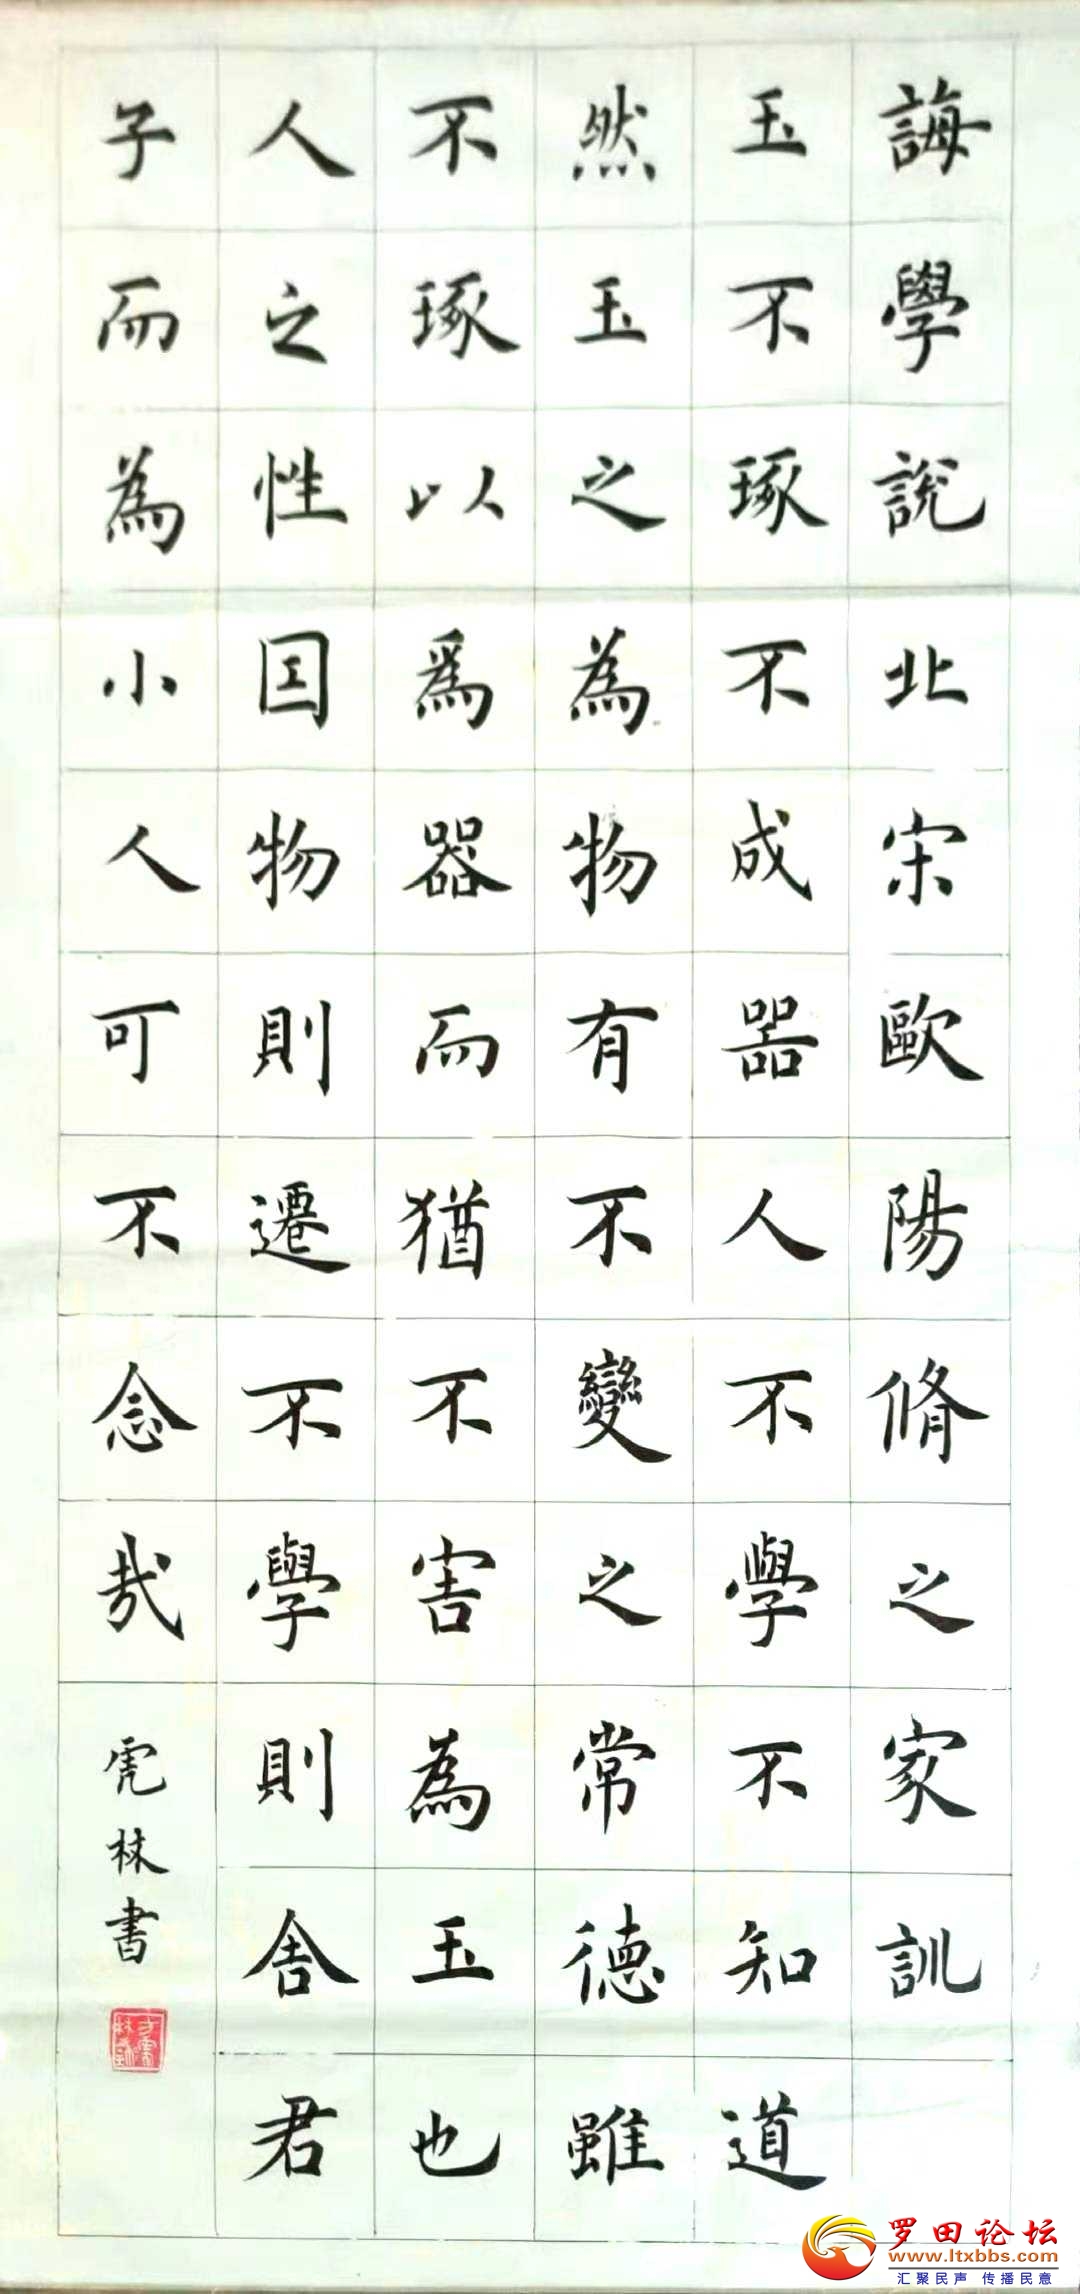 誨學說北宋歐陽脩之家訓
玉不琢不成器人不學不知道
然玉之為物有不變之常德雖
不琢以爲器而猶不害為玉也
人之性因物則遷不學則舍君
子而為小人可不念哉
虎林書
罗田论坛
www.ltxbbs.com
汇聚民声 传播民意